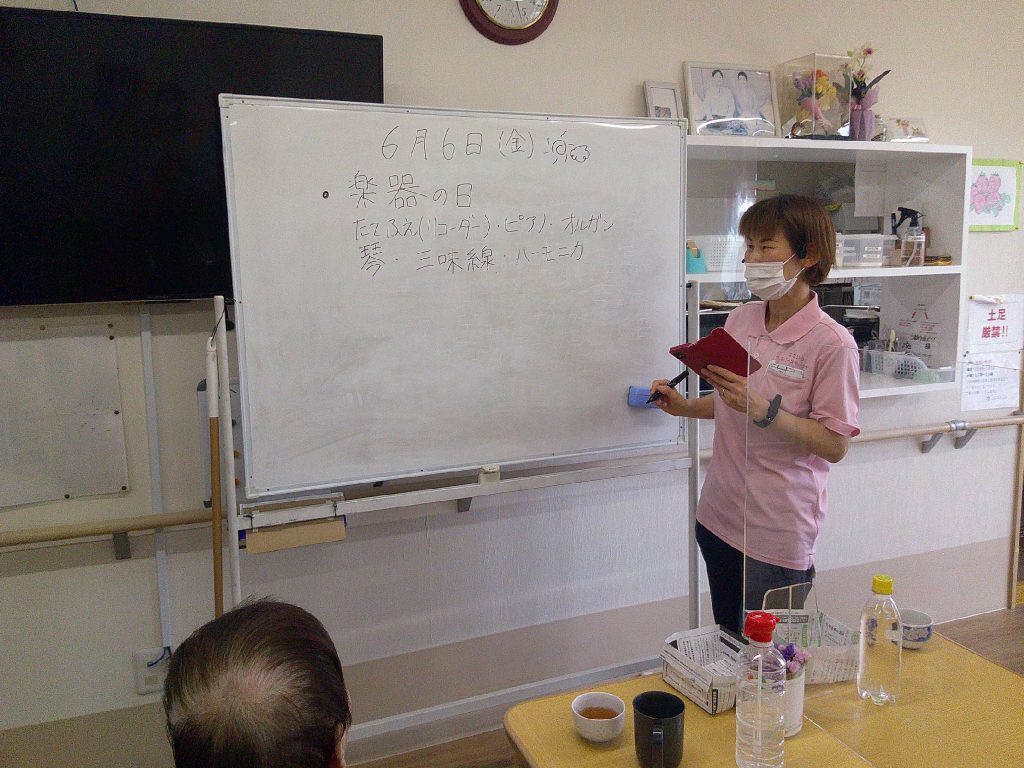 6月6日(金)
・楽器の日
たてぶえ(リコーダー)・ピアノ・オルガン
琴・三味線・ハーモニカ
土足
厳禁!!